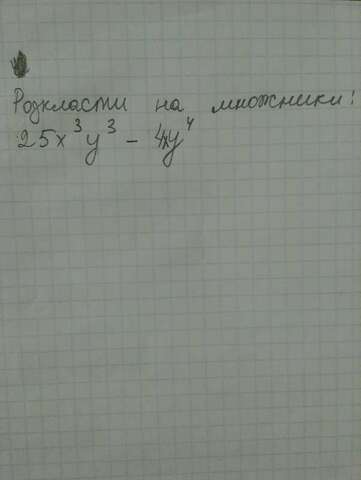 Розкласти на множники:
25x³y³ - 4xy⁴